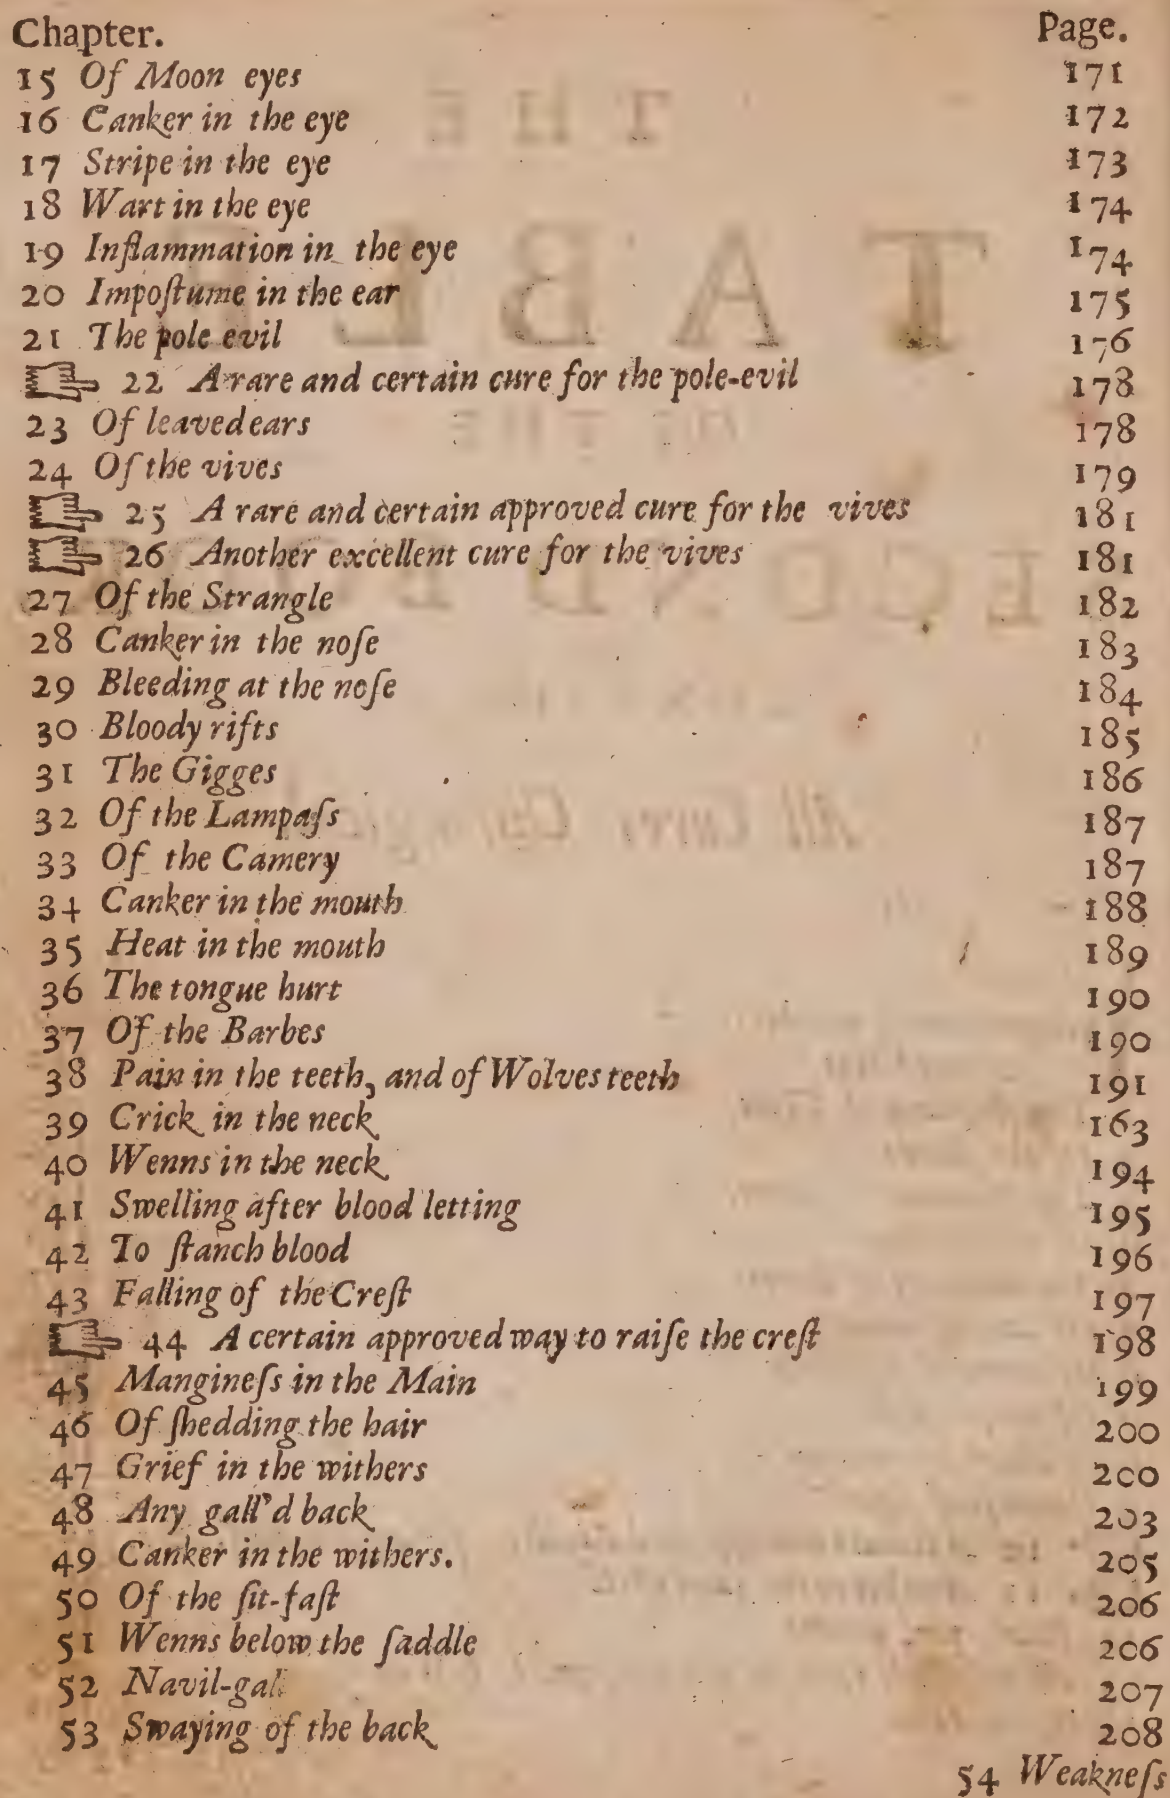 Chapter. Page.
15 Of Moon eyes 171
16 Canker in the eye 172
17 Stripe in the eye 173
18 Wart in the eye 174
19 Inflammation in the eye 174
20 Impoſtume in the ear 175
21 The pole evil 176
☞ 22 A rare and certain cure for the pole-evil 178
23 Of leaved ears 178
24 Of the vives 179
☞ 25 A rare and certain approved cure for the vives 181
☞ 26 Another excellent cure for the vives 181
27 Of the Strangle 182
28 Canker in the noſe 183
29 Bleeding at the noſe 184
30 Bloody rifts 185
31 The Gigges 186
32 Of the Lampaſs 187
33 Of the Camery 187
34 Canker in the mouth 188
35 Heat in the mouth 189
36 The tongue hurt 190
37 Of the Barbes 190
38 Pain in the teeth, and of Wolves teeth 191
39 Crick in the neck 163
40 Wenns in the neck 194
41 Swelling after blood letting 195
42 To ſtanch blood 196
43 Falling of the Creſt 197
☞ 44 A certain approved way to raiſe the creſt 198
45 Mangineſs in the Main 199
46 Of ſhedding the hair 200
47 Grief in the withers 200
48 Any gall'd back 203
49 Canker in the withers. 205
50 Of the ſit-faſt 206
51 Wenns below the ſaddle 206
52 Navil-gal 207
53 Swaying of the back 208
54 Weakneſs